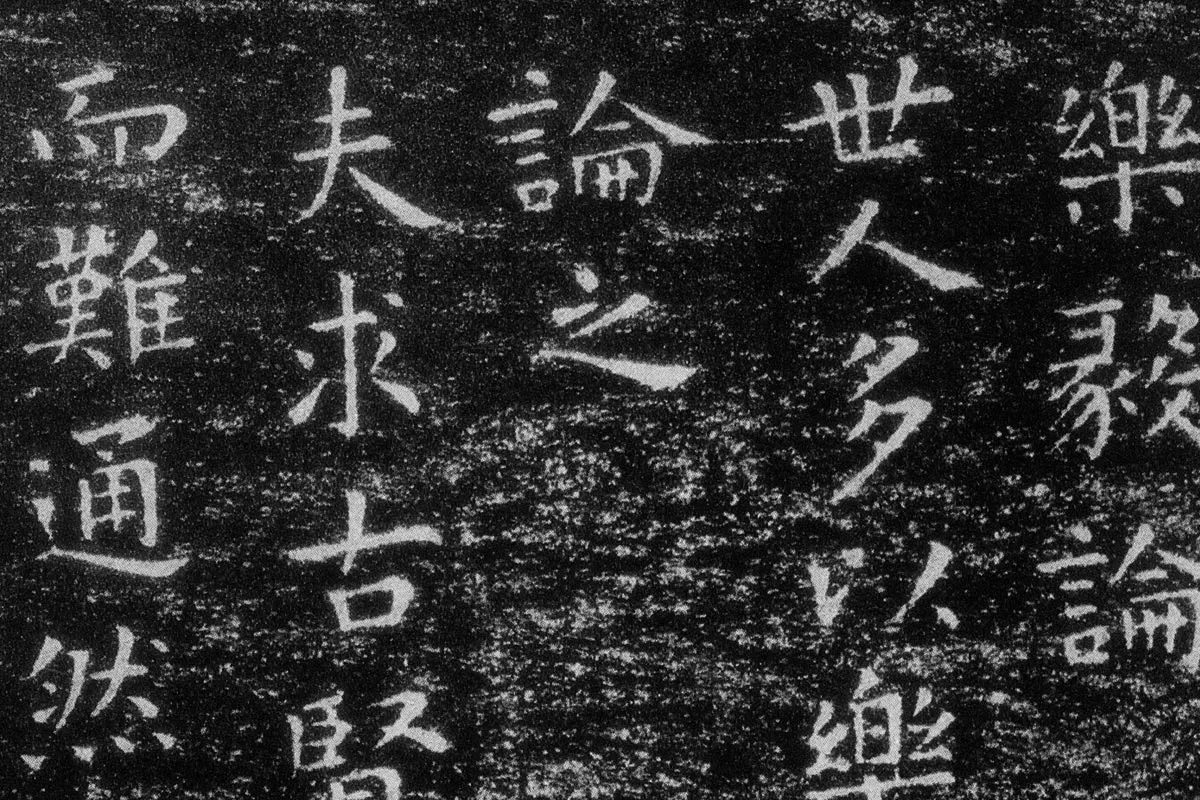 樂毅論
世人多以樂
論之
夫求古賢
而難通然